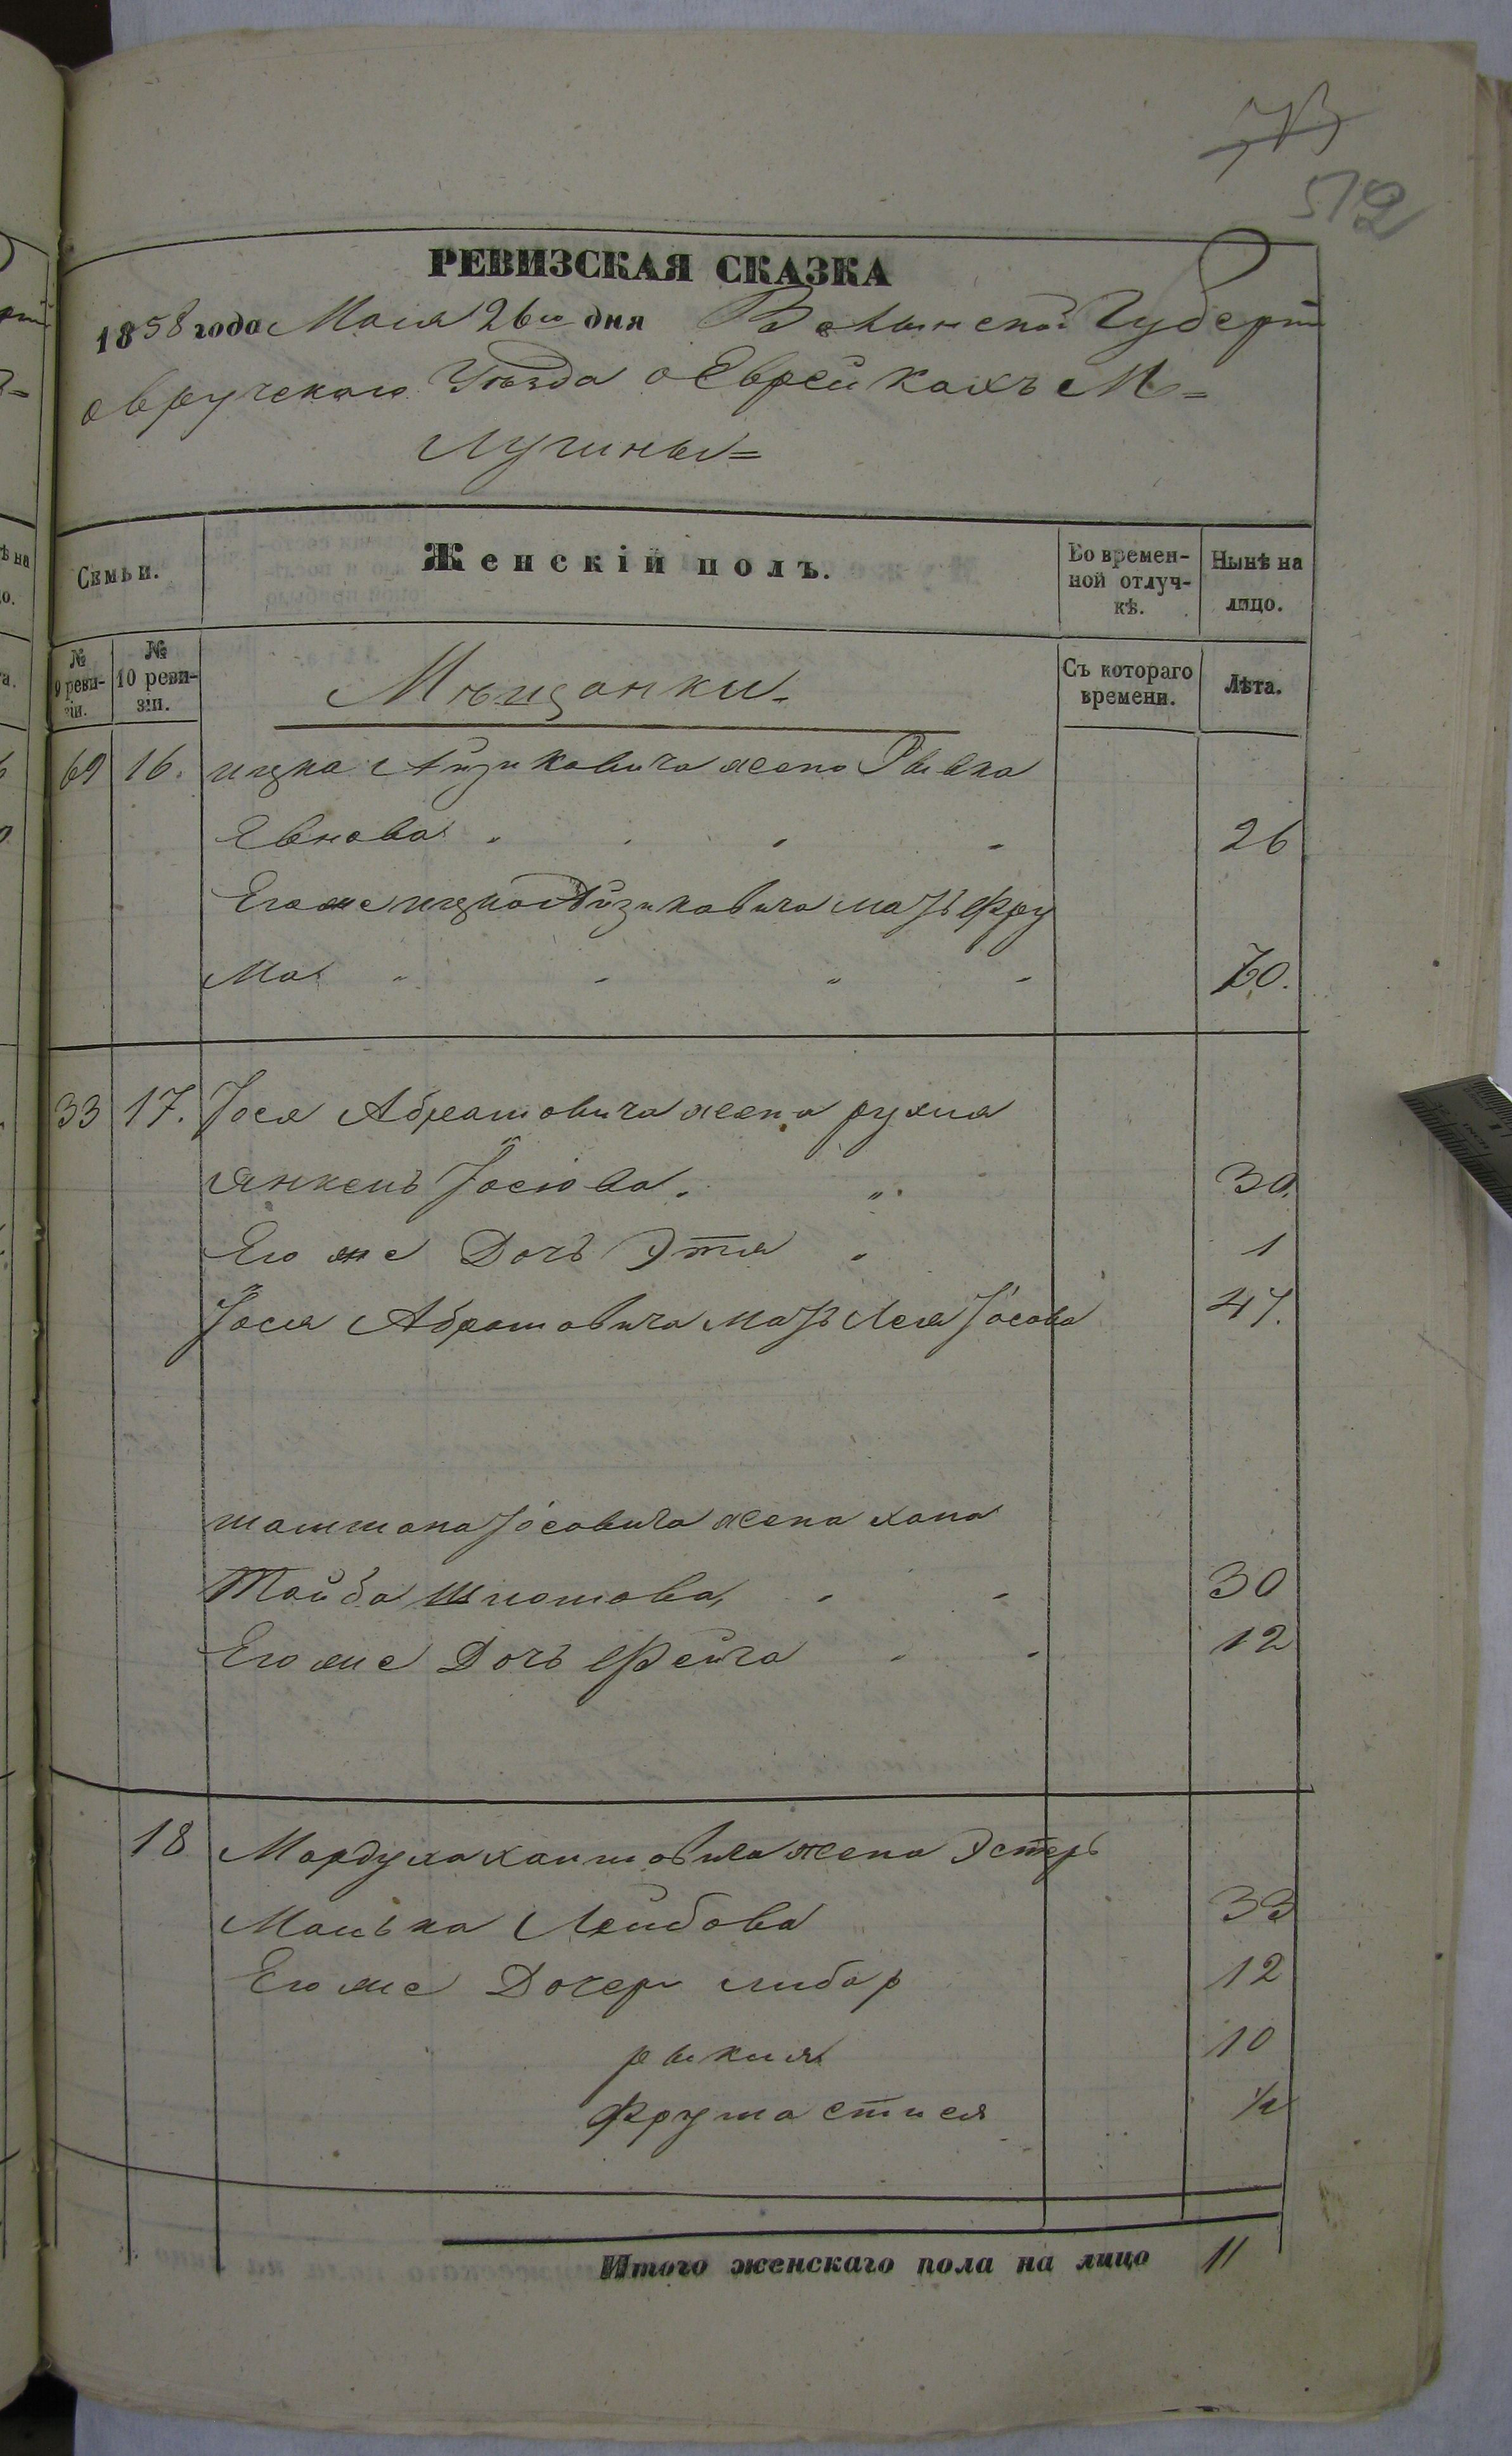 73
512
РЕВИЗСКАЯ СКАЗКА
1858 года Маия 26го дня Волынской Губерніи
овручского Уѣзда о Еврейкахъ М=
Лугины=
Семьи.
Женскій полъ.
Во времен-
ной отлуч-
кѣ.
Нынѣ на
лицо.
№
9 реви-
зіи.
№
10 реви-
зіи.
Мѣщанки.
Съ котораго
времени.
Лѣта.
69 16. ицка Айзиковича жена Рывка
Евнова 26
Егоже ицка Айзиковича мать Фру
Ма 70.
33 17. Іося Абрамовича жена рухля
Янкель Іосіова 30.
Его же Дочь Этля 1
Іося Абрамовича мать Лея Іосова 47.
Іосовича жена хана
Тайба Шломова 30
Его же Дочь Фейга 12
18 Мордуха хаимовича жена Эстерь
Малька Лейбова 33
Его же Дочери либа р 12
рыкля 10
Фрума стися ½
Итого женскаго пола на лицо 11